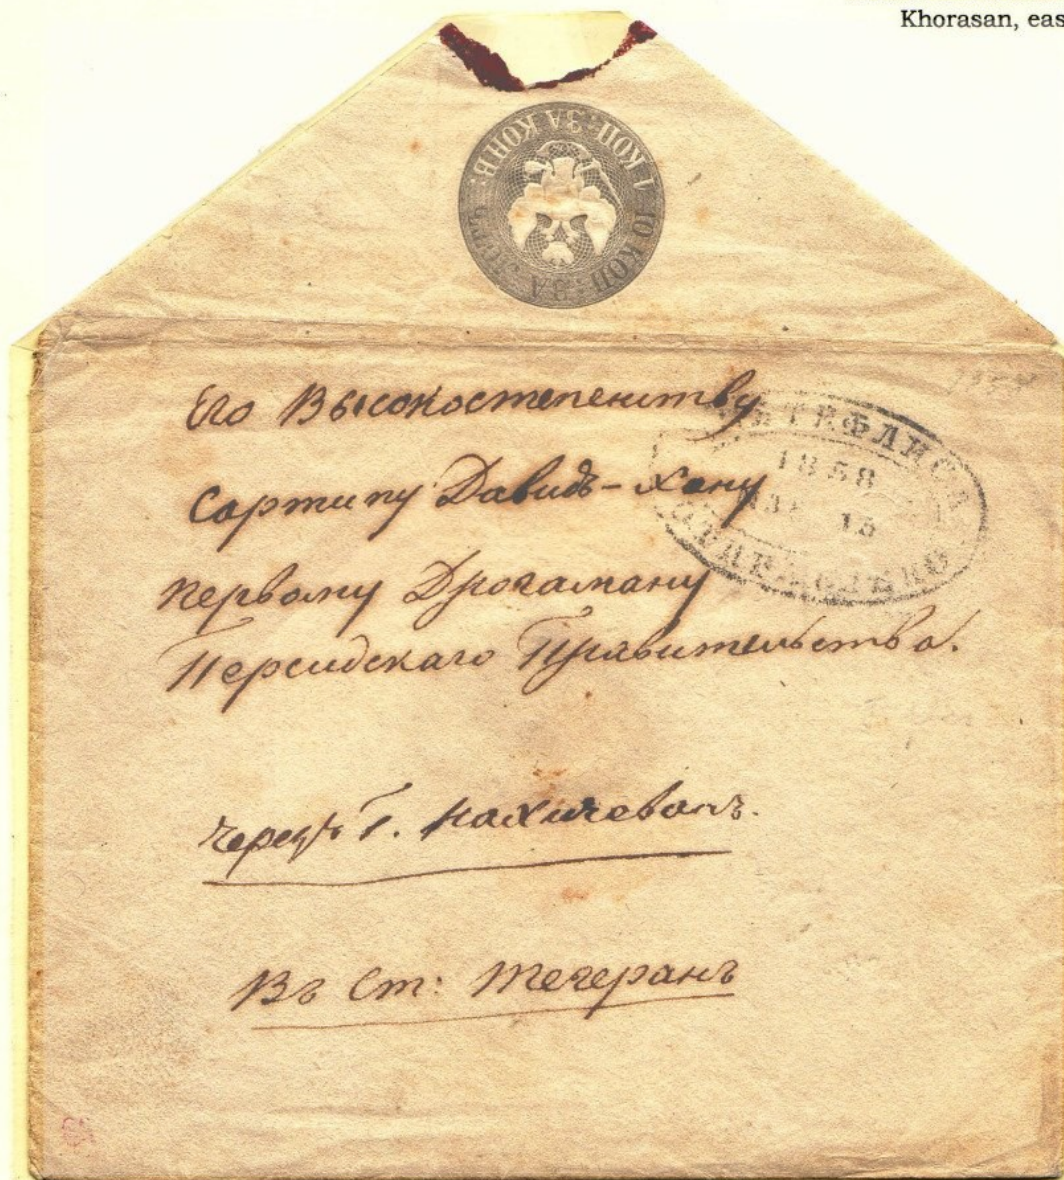 Khorasan, eas
10 КОП: ЗА ЛОТЪ
1 КОП: ЗА КОНВ:
Его Высокостепенству
Сартипу Давидъ-Хану
Первому Дрогаману
Персидскаго Правительства.
Черезъ Г. Нахичевань.
Въ Ст: Тегеранъ
ТИФЛИСА
1858
15